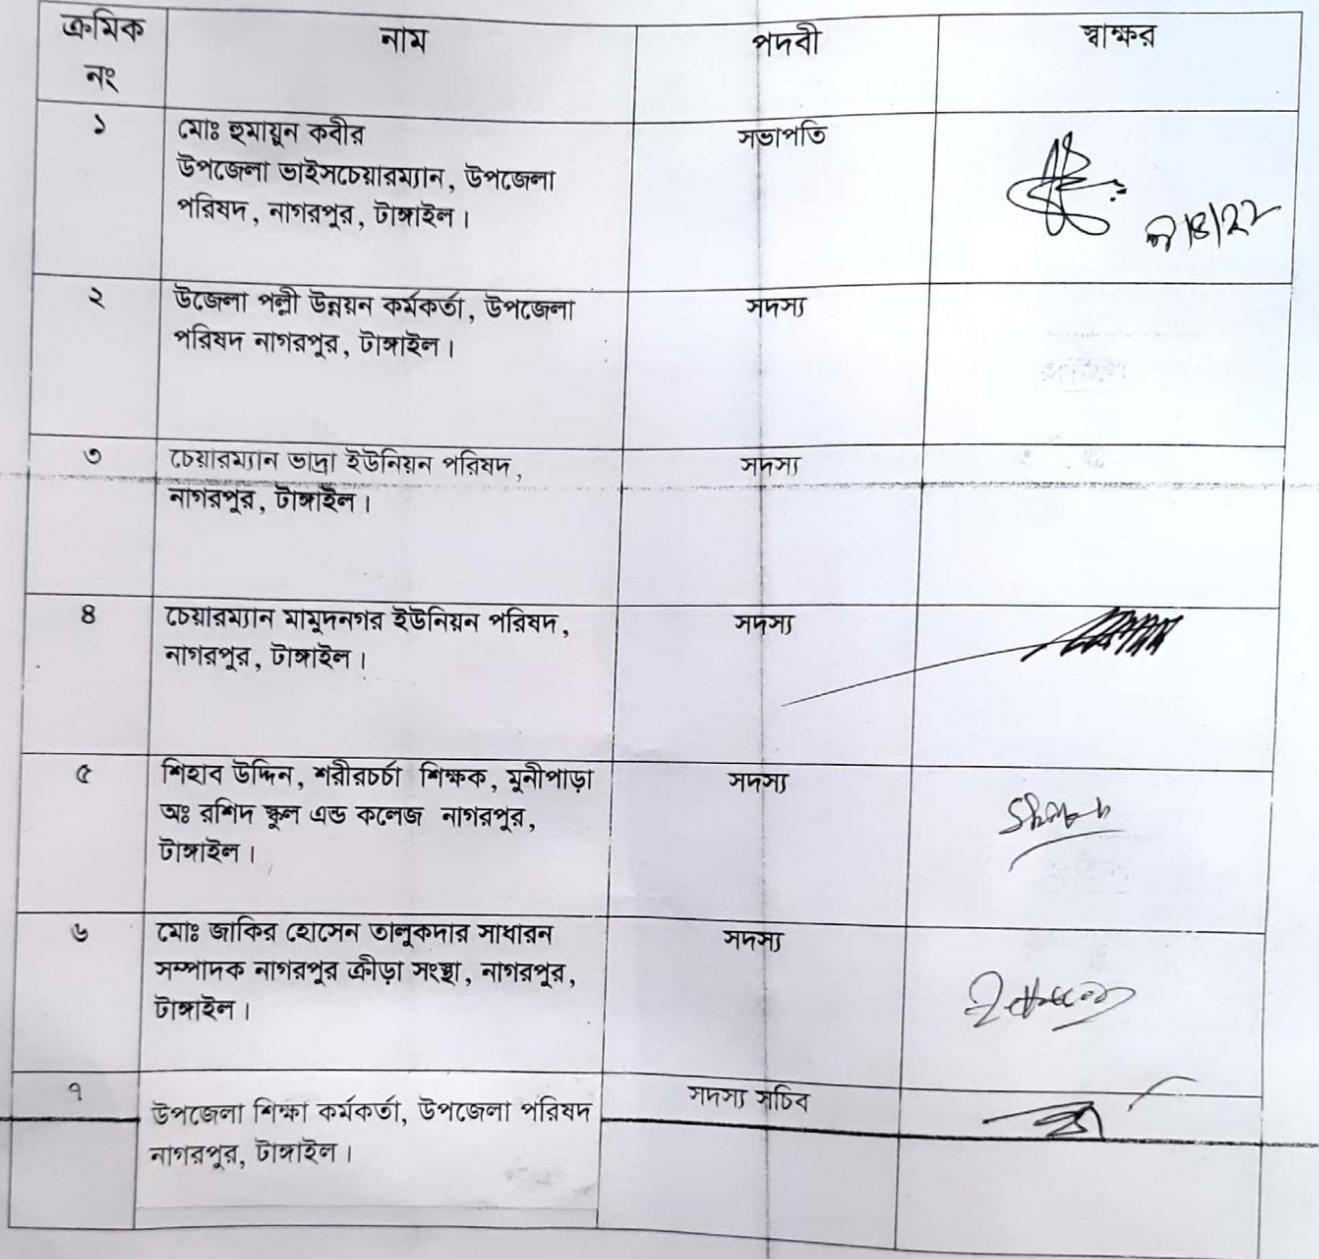 ক্রমিক নং
নাম
পদবী
স্বাক্ষর
১
মোঃ হুমায়ুন কবীর
উপজেলা ভাইসচেয়ারম্যান, উপজেলা
পরিষদ, নাগরপুর, টাঙ্গাইল।
সভাপতি
২
উজেলা পল্লী উন্নয়ন কর্মকর্তা, উপজেলা
পরিষদ নাগরপুর, টাঙ্গাইল।
সদস্য
৩
চেয়ারম্যান ভাদ্রা ইউনিয়ন পরিষদ,
নাগরপুর, টাঙ্গাইল।
সদস্য
৪
চেয়ারম্যান মামুদনগর ইউনিয়ন পরিষদ,
নাগরপুর, টাঙ্গাইল।
সদস্য
৫
শিহাব উদ্দিন, শরীরচর্চা শিক্ষক, মুনীপাড়া
অঃ রশিদ স্কুল এন্ড কলেজ নাগরপুর,
টাঙ্গাইল।
সদস্য
৬
মোঃ জাকির হোসেন তালুকদার সাধারন
সম্পাদক নাগরপুর ক্রীড়া সংস্থা, নাগরপুর,
টাঙ্গাইল।
সদস্য
৭
উপজেলা শিক্ষা কর্মকর্তা, উপজেলা পরিষদ
নাগরপুর, টাঙ্গাইল।
সদস্য সচিব